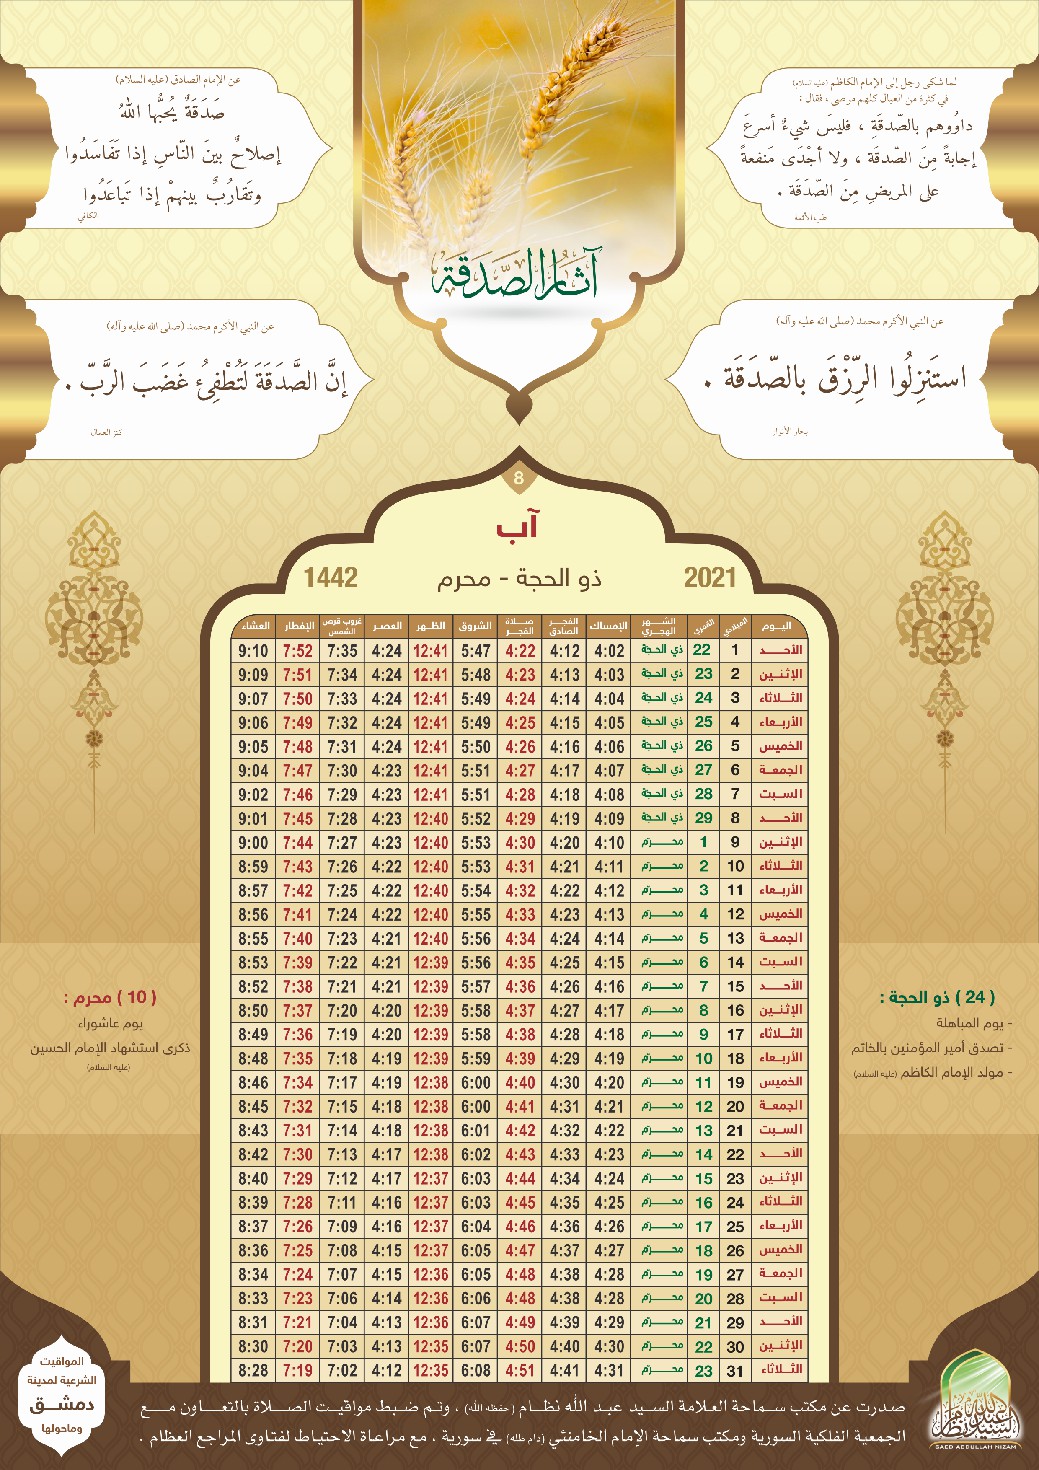 لما شكى رجل إلى الإمام الكاظم (عليه السلام)
في كثرة من العيال كلهم مرضى ، فقال :
داوُوهم بالصّدقَةِ ، فليسَ شيءٌ أسرعَ
إجابةً مِنَ الصّدقة ، ولا أجْدَى مَنفعةً
على المريضِ مِنَ الصَّدَقَة .
طب الأئمة
عن الإمام الصادق (عليه السلام)
صَدَقَةٌ يُحبُّها اللهُ
إصلاحٌ بينَ النَّاسِ إذا تَفَاسَدُوا
وتَقَارُبٌ بينهمْ إذا تَباعَدُوا
الكافي
آثار الصّدقة
عن النبي الأكرم محمد (صلى الله عليه وآله)
استَنزِلُوا الرِّزْقَ بالصّدَقَة .
بحار الأنوار
عن النبي الأكرم محمد (صلى الله عليه وآله)
إنَّ الصَّدَقَةَ لَتُطْفِئُ غَضَبَ الرَّبّ .
كنز العمال
8
آب
2021 ذو الحجة - محرم 1442
اليوم الميلادي القمري الشهر الهجري الإمساك الفجر الصادق صلاة الفجر الشروق الظهر العصر غروب قرص الشمس الإفطار العشاء
الأحد 1 22 ذي الحجة 4:02 4:12 4:22 5:47 12:41 4:24 7:35 7:52 9:10
الإثنين 2 23 ذي الحجة 4:03 4:13 4:23 5:48 12:41 4:24 7:34 7:51 9:09
الثلاثاء 3 24 ذي الحجة 4:04 4:14 4:24 5:49 12:41 4:24 7:33 7:50 9:07
الأربعاء 4 25 ذي الحجة 4:05 4:15 4:25 5:49 12:41 4:24 7:32 7:49 9:06
الخميس 5 26 ذي الحجة 4:06 4:16 4:26 5:50 12:41 4:24 7:31 7:48 9:05
الجمعة 6 27 ذي الحجة 4:07 4:17 4:27 5:51 12:41 4:23 7:30 7:47 9:04
السبت 7 28 ذي الحجة 4:08 4:18 4:28 5:51 12:41 4:23 7:29 7:46 9:02
الأحد 8 29 ذي الحجة 4:09 4:19 4:29 5:52 12:40 4:23 7:28 7:45 9:01
الإثنين 9 1 محرم 4:10 4:20 4:30 5:53 12:40 4:23 7:27 7:44 9:00
الثلاثاء 10 2 محرم 4:11 4:21 4:31 5:53 12:40 4:22 7:26 7:43 8:59
الأربعاء 11 3 محرم 4:12 4:22 4:32 5:54 12:40 4:22 7:25 7:42 8:57
الخميس 12 4 محرم 4:13 4:23 4:33 5:55 12:40 4:22 7:24 7:41 8:56
الجمعة 13 5 محرم 4:14 4:24 4:34 5:56 12:40 4:21 7:23 7:40 8:55
السبت 14 6 محرم 4:15 4:25 4:35 5:56 12:39 4:21 7:22 7:39 8:53
الأحد 15 7 محرم 4:16 4:26 4:36 5:57 12:39 4:21 7:21 7:38 8:52
الإثنين 16 8 محرم 4:17 4:27 4:37 5:58 12:39 4:20 7:20 7:37 8:50
الثلاثاء 17 9 محرم 4:18 4:28 4:38 5:58 12:39 4:20 7:19 7:36 8:49
الأربعاء 18 10 محرم 4:19 4:29 4:39 5:59 12:39 4:19 7:18 7:35 8:48
الخميس 19 11 محرم 4:20 4:30 4:40 6:00 12:38 4:19 7:17 7:34 8:46
الجمعة 20 12 محرم 4:21 4:31 4:41 6:00 12:38 4:18 7:15 7:32 8:45
السبت 21 13 محرم 4:22 4:32 4:42 6:01 12:38 4:18 7:14 7:31 8:43
الأحد 22 14 محرم 4:23 4:33 4:43 6:02 12:38 4:17 7:13 7:30 8:42
الإثنين 23 15 محرم 4:24 4:34 4:44 6:03 12:37 4:17 7:12 7:29 8:40
الثلاثاء 24 16 محرم 4:25 4:35 4:45 6:03 12:37 4:16 7:11 7:28 8:39
الأربعاء 25 17 محرم 4:26 4:36 4:46 6:04 12:37 4:16 7:09 7:26 8:37
الخميس 26 18 محرم 4:27 4:37 4:47 6:05 12:37 4:15 7:08 7:25 8:36
الجمعة 27 19 محرم 4:28 4:38 4:48 6:05 12:36 4:15 7:07 7:24 8:34
السبت 28 20 محرم 4:28 4:38 4:48 6:06 12:36 4:14 7:06 7:23 8:33
الأحد 29 21 محرم 4:29 4:39 4:49 6:07 12:36 4:13 7:04 7:21 8:31
الإثنين 30 22 محرم 4:30 4:40 4:50 6:07 12:35 4:13 7:03 7:20 8:30
الثلاثاء 31 23 محرم 4:31 4:41 4:51 6:08 12:35 4:12 7:02 7:19 8:28
( 24 ) ذو الحجة :
- يوم المباهلة
- تصدق أمير المؤمنين بالخاتم
- مولد الإمام الكاظم (عليه السلام)
( 10 ) محرم :
يوم عاشوراء
ذكرى استشهاد الإمام الحسين
(عليه السلام)
صدرت عن مكتب سماحة العلامة السيد عبد الله نظام (حفظه الله) ، وتم ضبط مواقيت الصلاة بالتعاون مع
الجمعية الفلكية السورية ومكتب سماحة الإمام الخامنئي (دام ظله) في سورية ، مع مراعاة الاحتياط لفتاوى المراجع العظام .
المواقيت
الشرعية لمدينة
دمشق
وماحولها
السيد عبد الله نظام
SAED ABDULLAH NIZAM